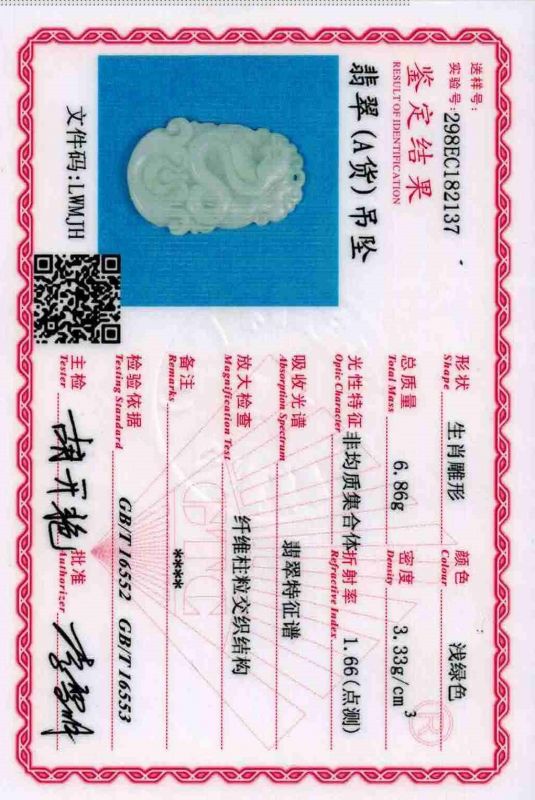 送样号:
实验号:298EC182137
鉴定结果
RESULT OF IDENTIFICATION
翡翠(A货)吊坠
文件码:LWMJH
形状 生肖雕形 颜色 浅绿色
Shape Colour
总质量 6.86g 密度 3.33g/cm³
Total Mass Density
光性特征 非均质集合体 折射率 1.66(点测)
Optic Character Refractive Index
吸收光谱 翡翠特征谱
Absorption Spectrum
放大检查 纤维柱粒交织结构
Magnification Test
备注 ****
Remarks
检验依据 GB/T 16552 GB/T 16553
Testing Standard
主检 批准
Tester Authorizer
GIC
®